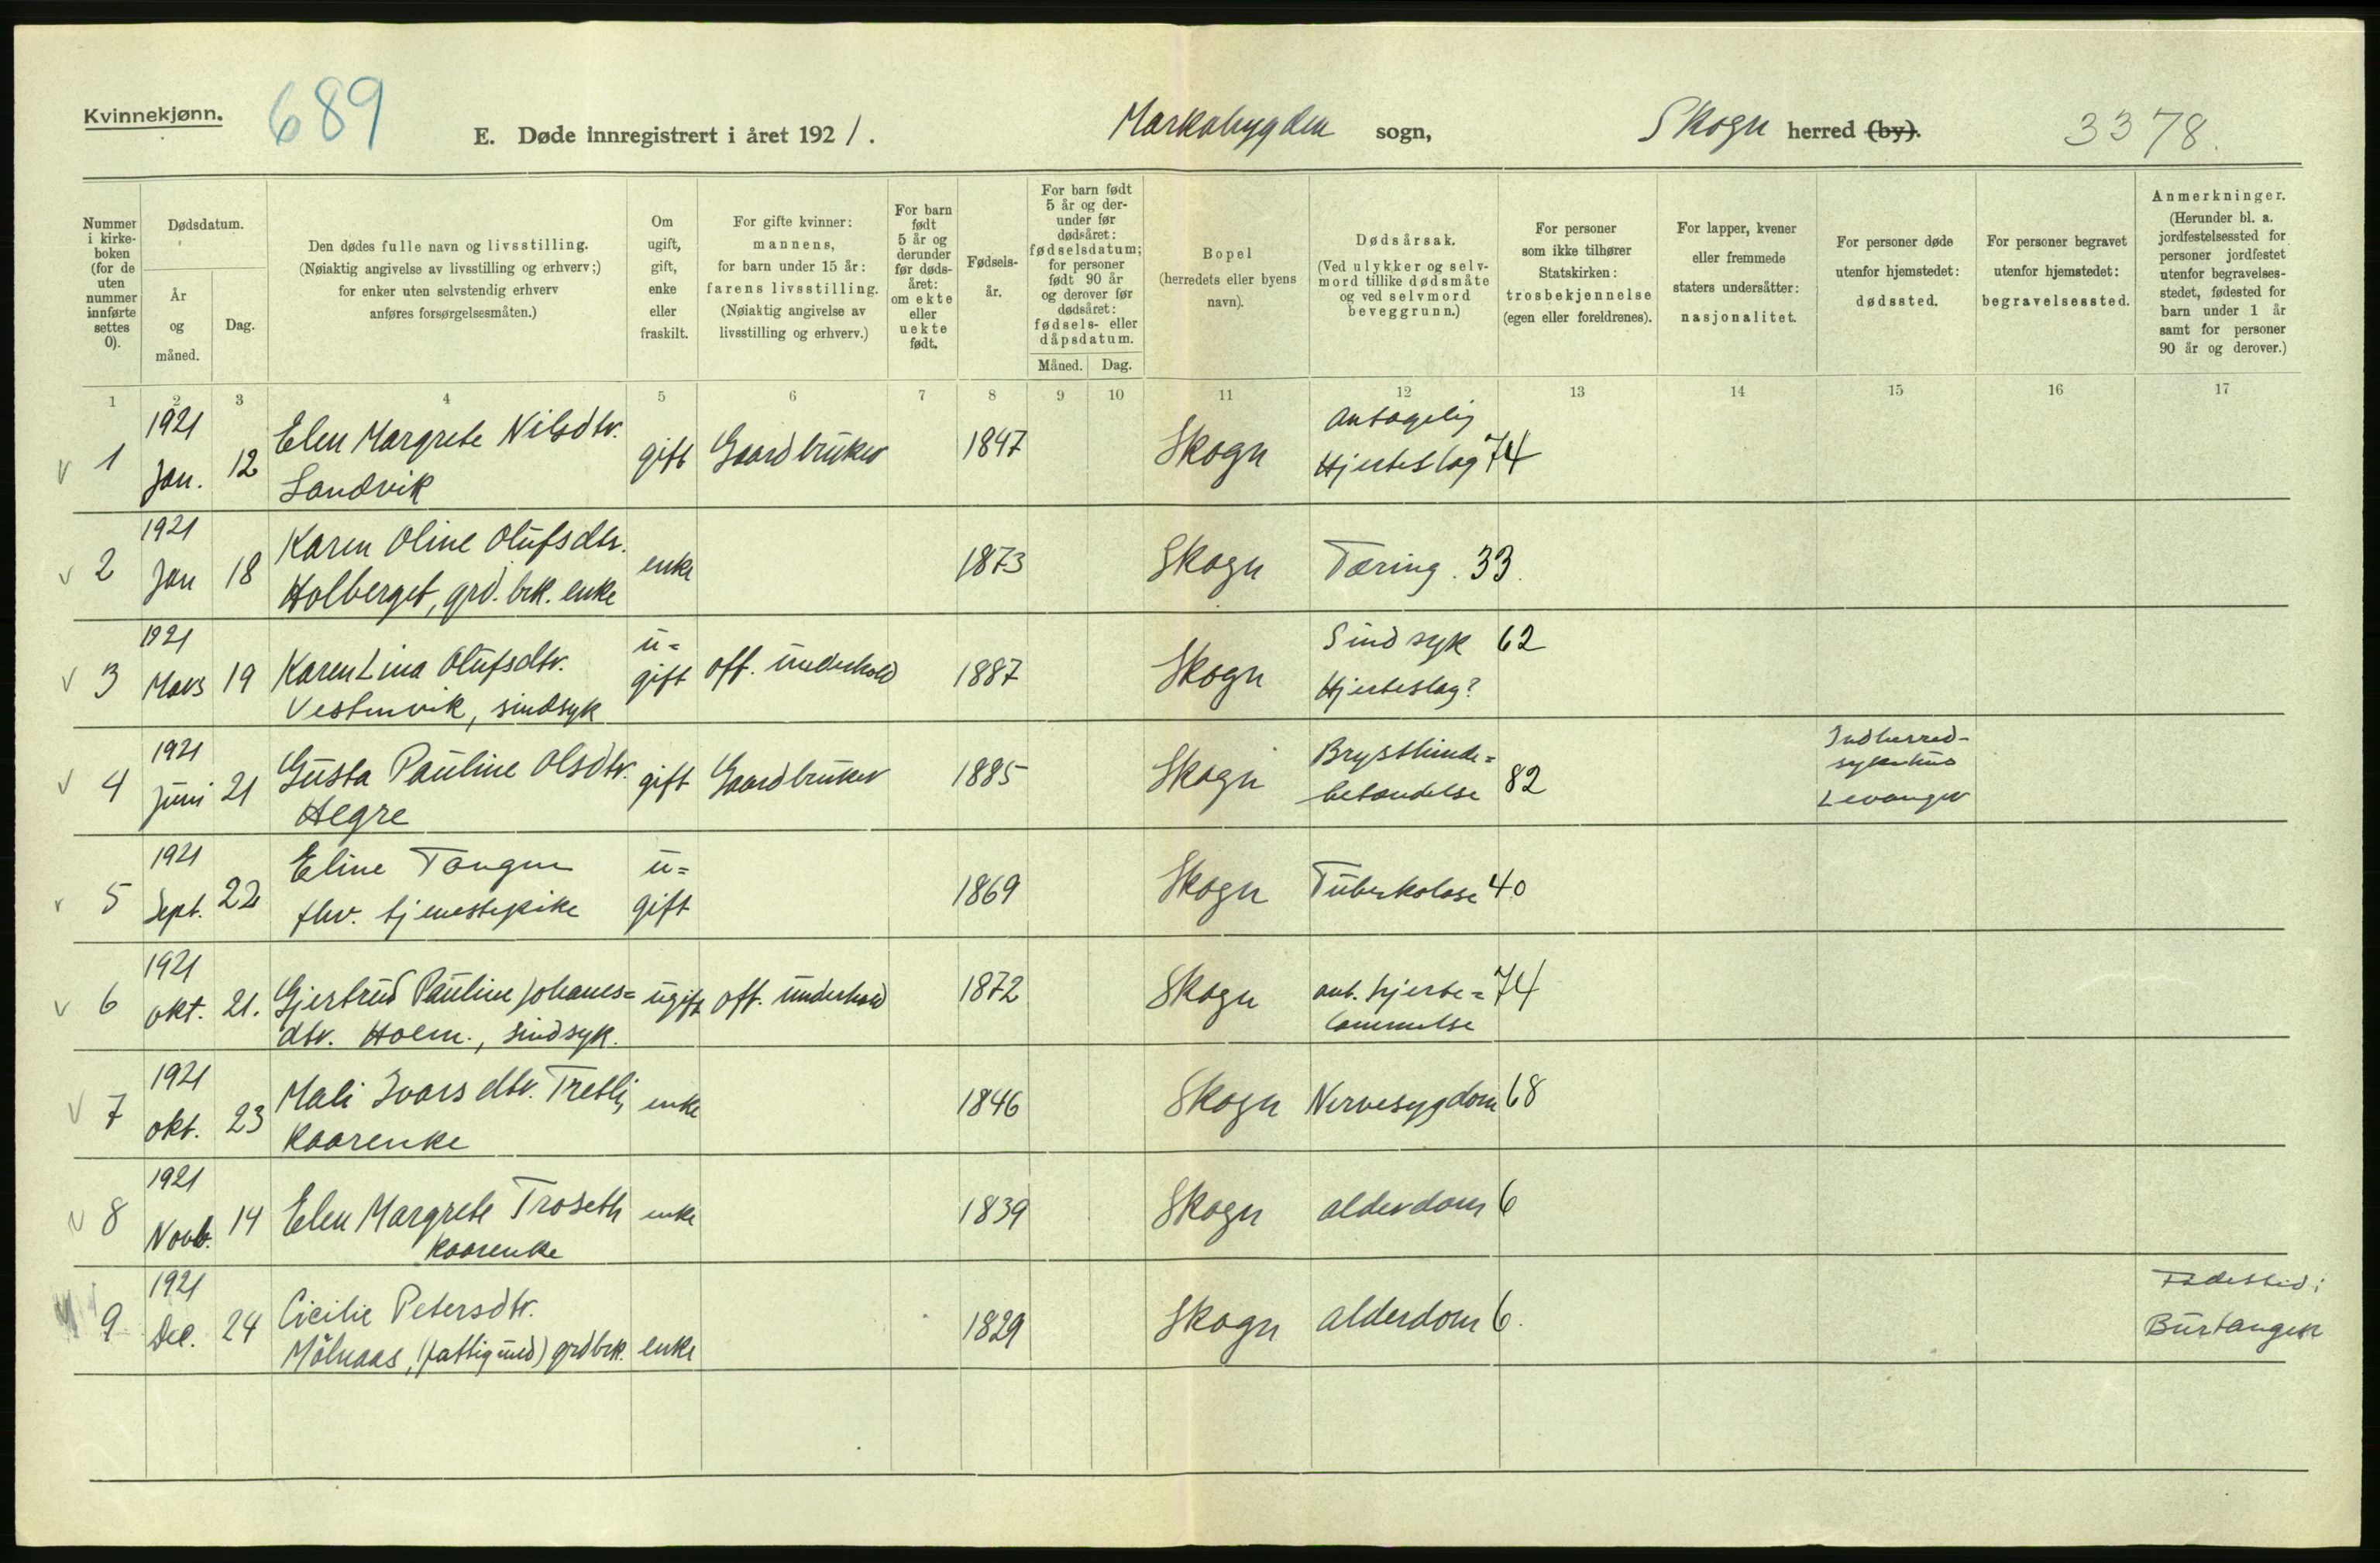 Kvinnekjønn.
689
E. Døde innregistrert i året 1921.
Markabygden sogn,
Skogn herred (by).
3378.
Nummer i kirke-boken (for de uten nummer innførte settes 0).
Dødsdatum.
År og måned.
Dag.
Den dødes fulle navn og livsstilling.
(Nøiaktig angivelse av livsstilling og erhverv;)
for enker uten selvstendig erhverv
anføres forsørgelsesmåten.)
Om ugift, gift, enke eller fraskilt.
For gifte kvinner:
mannens,
for barn under 15 år:
farens livsstilling.
(Nøiaktig angivelse av
livsstilling og erhverv.)
For barn født 5 år og derunder før døds-året: om ekte eller uekte født.
Fødsels-år.
For barn født 5 år og der-under før dødsåret: fødselsdatum; for personer født 90 år og derover før dødsåret: fødsels- eller dåpsdatum.
Måned. Dag.
Bopel
(herredets eller byens
navn).
Dødsårsak.
(Ved ulykker og selv-
mord tillike dødsmåte
og ved selvmord
beveggrunn.)
For personer
som ikke tilhører
Statskirken:
trosbekjennelse
(egen eller foreldrenes).
For lapper, kvener
eller fremmede
staters undersåtter:
nasjonalitet.
For personer døde
utenfor hjemstedet:
dødssted.
For personer begravet
utenfor hjemstedet:
begravelsessted.
Anmerkninger.
(Herunder bl. a.
jordfestelsessted for
personer jordfestet
utenfor begravelses-
stedet, fødested for
barn under 1 år
samt for personer
90 år og derover.)
1 2 3 4 5 6 7 8 9 10 11 12 13 14 15 16 17
v 1 1921 Jan. 12 Elen Margrete Nilsdtr. Sandvik gift Gaardbruker 1847 Skogn Antagelig Hjerteslag 74
v 2 1921 Jan 18 Karen Oline Olufsdtr. Holberget, grd. brk. enke enke 1873 Skogn Tæring. 33.
v 3 1921 Mars 19 Karen Lina Olufsdtr. Vestervik, sindsyk u=gift off. underhold 1887 Skogn Sindsyk 62 Hjerteslag?
v 4 1921 Juni 21 Gusta Pauline Olsdtr. Hegre gift Gaardbruker 1885 Skogn Brysthinde=betændelse 82 Indherred-sykehus Levanger
v 5 1921 Sept. 22 Eline Tangen fhv. tjenestepike u=gift 1869 Skogn Tuberkolose 40
v 6 1921 okt. 21. Gjertrud Pauline Johanes=dtr. Holm., sindsyk. ugift off. underhold 1872 Skogn ant. hjerte=lammelse 74
v 7 1921 okt. 23 Mali Ivarsdtr. Tretli, kaarenke enke 1846 Skogn Nervesygdom 68
v 8 1921 Novb. 14 Elen Margrete Troseth kaarenke enke 1839 Skogn alderdom 6
9 1921 Dec. 24 Cicilie Petersdtr. Målnaas, (fattigund) grdbrk. enke 1829 Skogn alderdom 6. Fødested: Burtangen